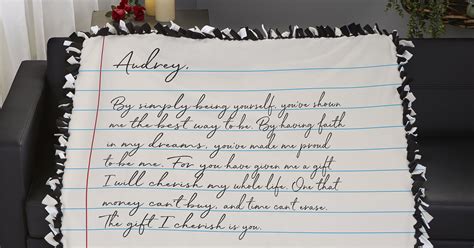 Audrey,
By simply being yourself, you've shown
me the best way to be. By having faith
in my dreams, you've made me proud
to be me. For you have given me a gift
I will cherish my whole life. One that
money can't buy, and time can't erase.
The gift I cherish is you.